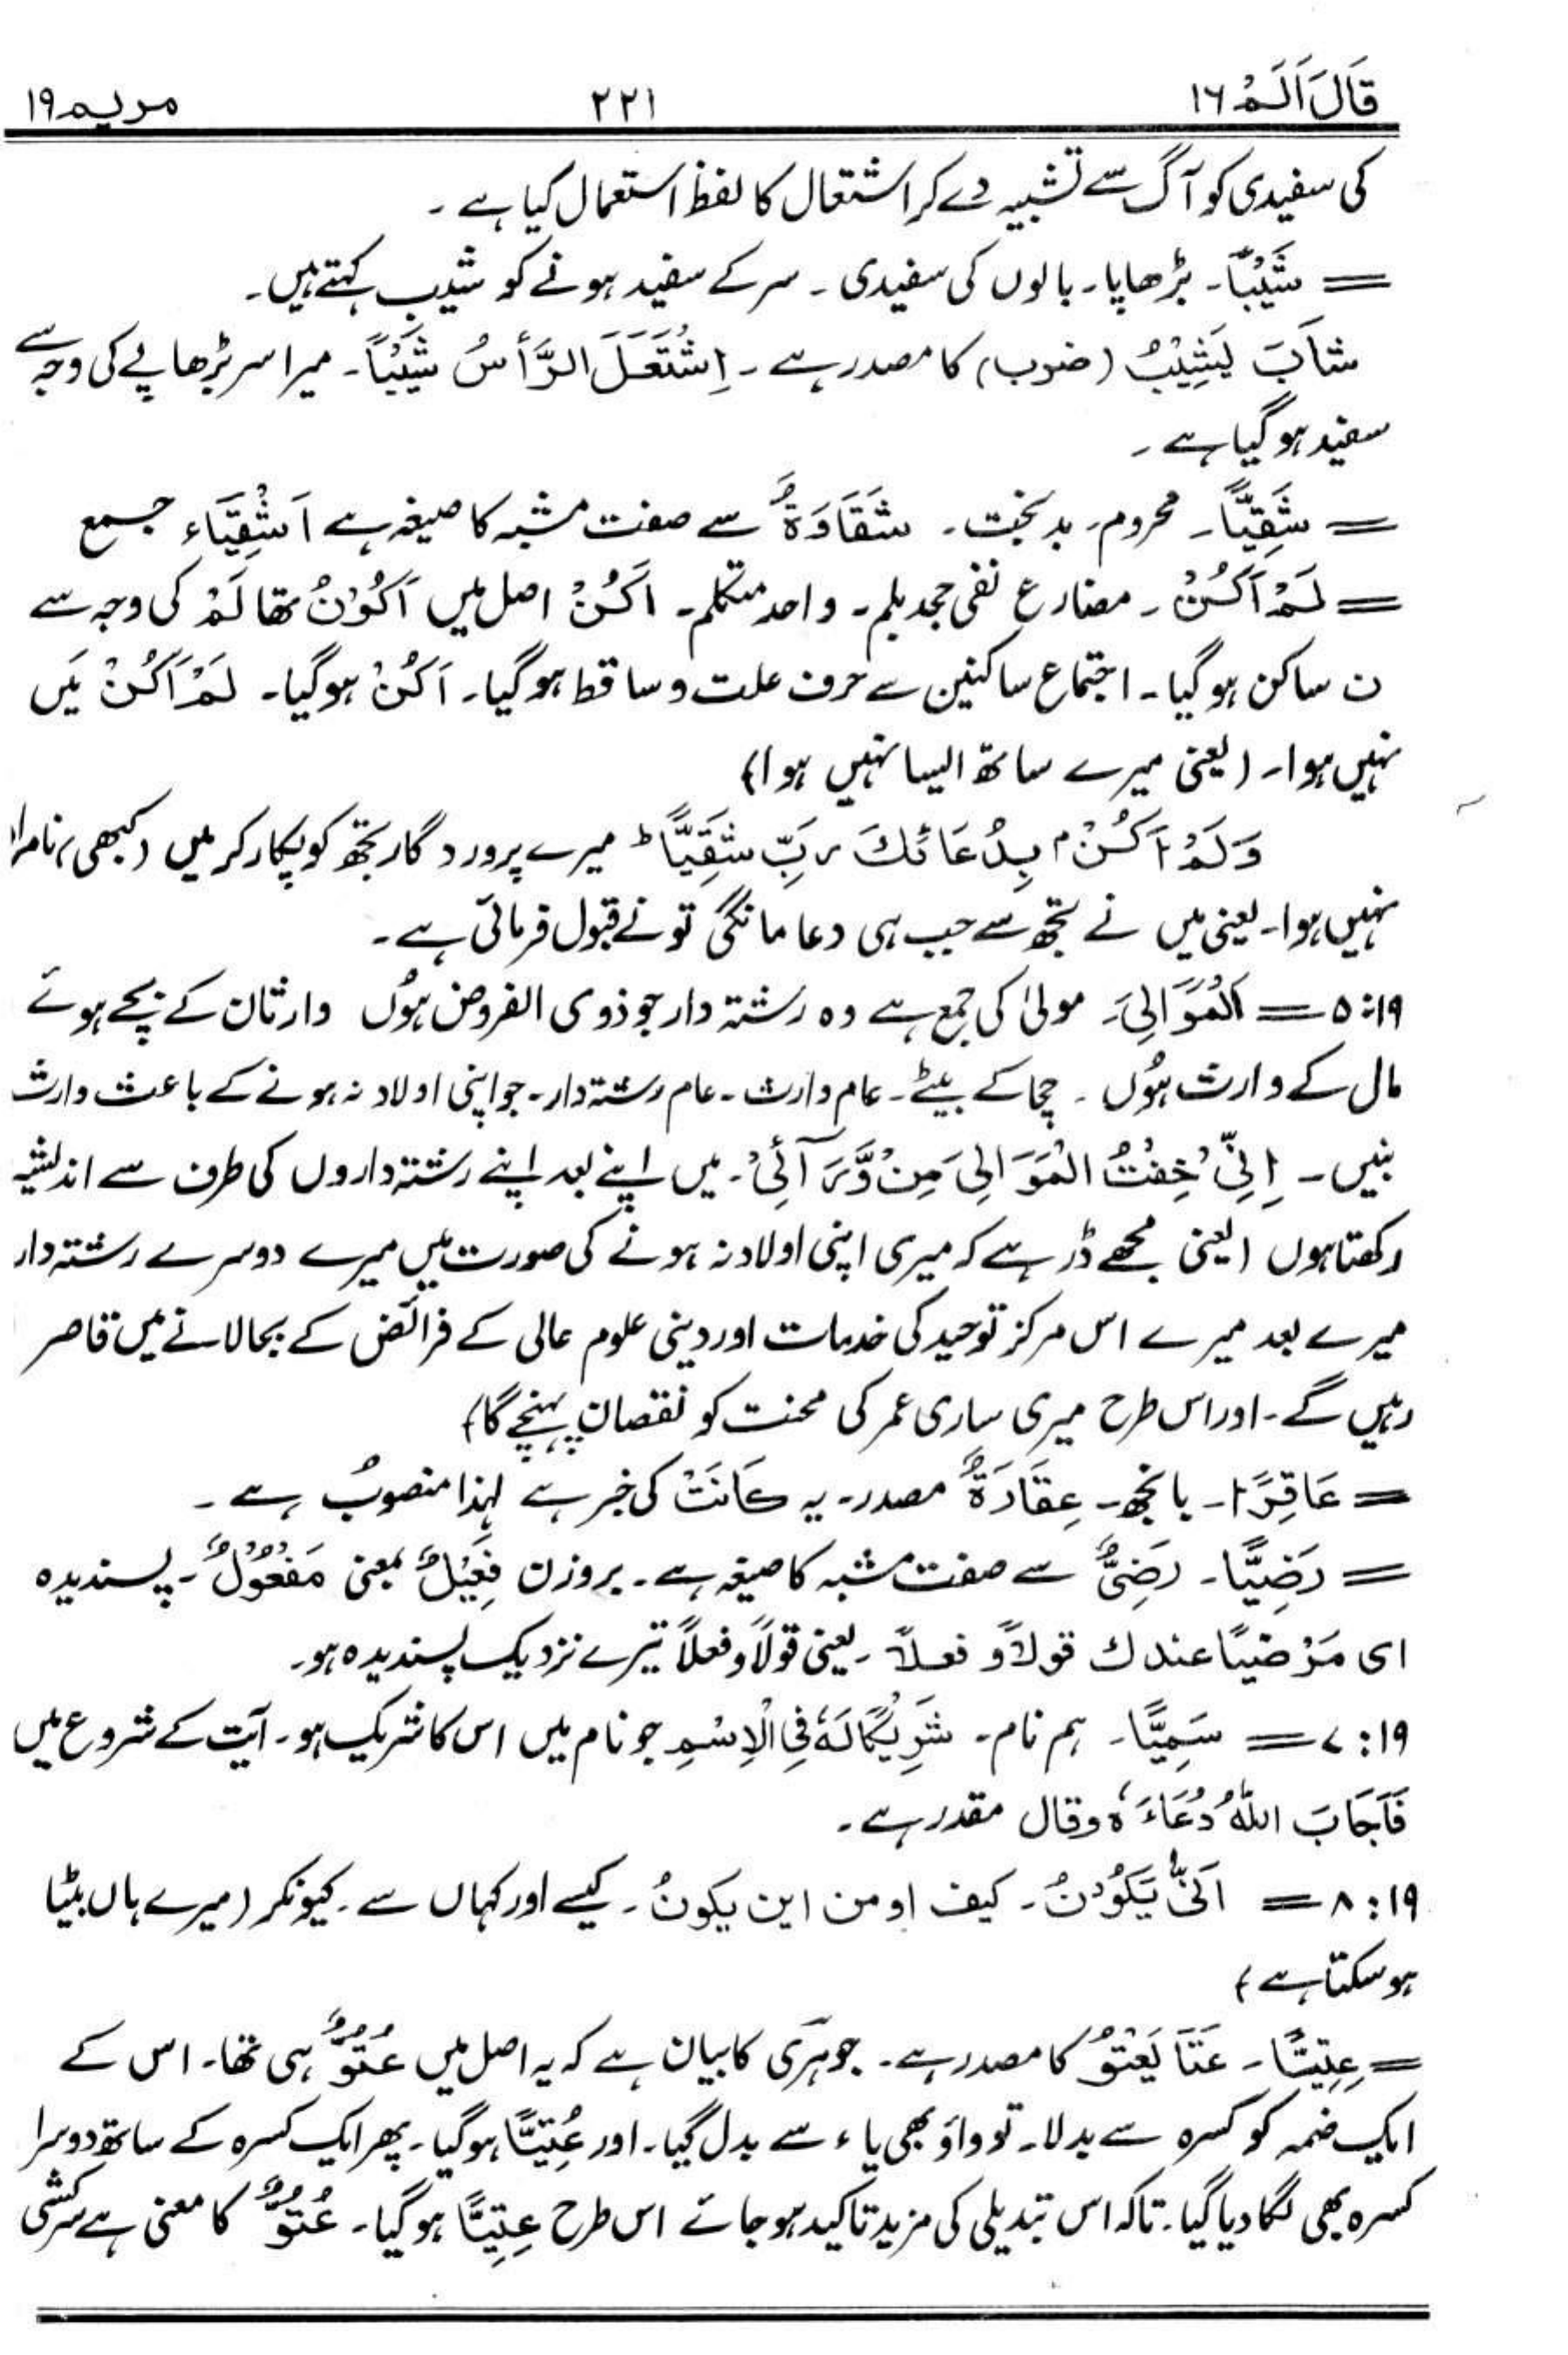 قَالَ اَلَمْ ١٦ ٢٢١ مريم ١٩
کی سفیدی کو آگ سے تشبیہ دے کر اشتعال کا لفظ استعمال کیا ہے ۔
= شَيْبًا ۔ بڑھاپا ۔ بالوں کی سفیدی ۔ سر کے سفید ہونے کو شیب کہتے ہیں ۔
شَابَ يَشِيْبُ (ضرب) کا مصدر ہے ۔ اِشْتَعَلَ الرَّأْسُ شَيْبًا ۔ میرا سر بڑھاپے کی وجہ سے
سفید ہو گیا ہے ۔
= شَقِيًّا ۔ محروم ۔ بدبخت ۔ شَقَاوَةٌ سے صفت مشبہ کا صیغہ ہے اَشْقِيَاء جمع
= لَمْ اَكُنْ ۔ مضارع نفی جحد بلم ۔ واحد متکلم ۔ اَكُنْ اصل میں اَكُوْنُ تھا لَمْ کی وجہ سے
ن ساکن ہو گیا ۔ اجتماع ساکنین سے حرف علت و ساقط ہو گیا ۔ اَكُنْ ہو گیا ۔ لَمْ اَكُنْ میں
نہیں ہوا ۔ (یعنی میرے ساتھ ایسا نہیں ہوا)
وَلَمْ اَكُنْۢ بِدُعَائِكَ رَبِّ شَقِيًّا ط میرے پروردگار تجھ کو پکار کر میں (کبھی) نامراد
نہیں ہوا ۔ یعنی میں نے تجھ سے جب ہی دعا مانگی تو نے قبول فرمائی ہے ۔
١٩:٥ = اَلْمَوَالِيَ ۔ مولیٰ کی جمع ہے وہ رشتہ دار جو ذوی الفروض ہوں وارثان کے بچے ہوئے
مال کے وارث ہوں ۔ چچا کے بیٹے ۔ عام وارث ۔ عام رشتہ دار ۔ جو اپنی اولاد نہ ہونے کے باعث وارث
بنیں ۔ اِنِّيْ خِفْتُ الْمَوَالِيَ مِنْ وَّرَآئِيْ ۔ میں اپنے بعد اپنے رشتہ داروں کی طرف سے اندیشہ
رکھتا ہوں (یعنی مجھے ڈر ہے کہ میری اپنی اولاد نہ ہونے کی صورت میں میرے دوسرے رشتہ دار
میرے بعد میرے اس مرکز توحید کی خدمات اور دینی علوم عالی کے فرائض کے بجا لانے میں قاصر
رہیں گے ۔ اور اس طرح میری ساری عمر کی محنت کو نقصان پہنچے گا)
= عَاقِرًا ۔ بانجھ ۔ عِقَارَةٌ مصدر ۔ یہ كَانَتْ کی خبر ہے لہذا منصوب ہے ۔
= رَضِيًّا ۔ رَضِيٌّ سے صفت مشبہ کا صیغہ ہے ۔ بروزن فِعَيْلٌ بمعنی مَفْعُوْلٌ ۔ پسندیدہ
ای مَرْضِيًّا عندك قولاً و فعلاً ۔ یعنی قولاً و فعلاً تیرے نزدیک پسندیدہ ہو ۔
١٩:٧ = سَمِيًّا ۔ ہم نام ۔ شَرِيْكًا لَهٗ فِي الْاِسْمِ جو نام میں اس کا شریک ہو ۔ آیت کے شروع میں
فَاَجَابَ اللّٰهُ دُعَاءَهٗ وقال مقدر ہے ۔
١٩:٨ = اَنّٰى يَكُوْنُ ۔ كيف او من اين يكونُ ۔ کیسے اور کہاں سے ۔ کیونکر (میرے ہاں بیٹا
ہو سکتا ہے)
= عِتِيًّا ۔ عَتَا يَعْتُوْ کا مصدر ہے ۔ جوہری کا بیان ہے کہ یہ اصل میں عُتُوٌّ ہی تھا ۔ اس کے
ایک ضمہ کو کسرہ سے بدلا ۔ تو واؤ بھی یاء سے بدل گیا ۔ اور عُتِيًّا ہو گیا ۔ پھر ایک کسرہ کے ساتھ دوسرا
کسرہ بھی لگا دیا گیا ۔ تاکہ اس تبدیلی کی مزید تاکید ہو جائے اس طرح عِتِيًّا ہو گیا ۔ عُتُوٌّ کا معنی ہے سرکشی